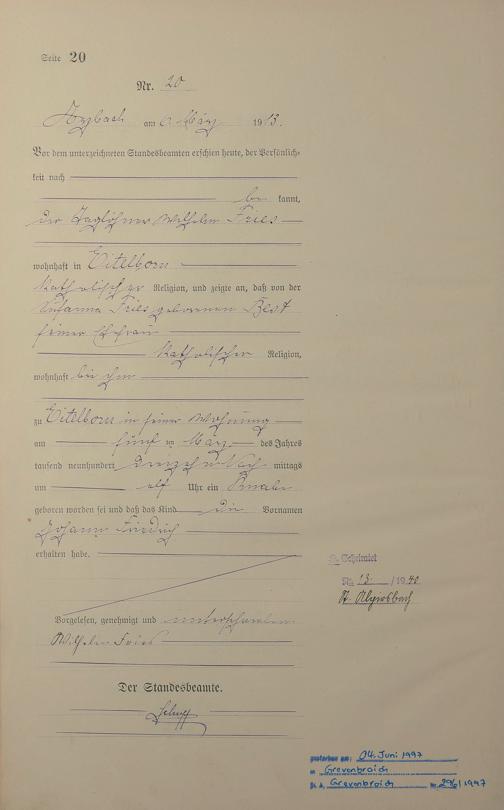 Seite 20
Nr. 20
Arzbach am 6. März 1913.
Vor dem unterzeichneten Standesbeamten erschien heute, der Persönlich-
keit nach
be kannt,
der Taglöhner Wilhelm Fries
wohnhaft in Eitelborn
katholischer Religion, und zeigte an, daß von der
Susanna Fries geborenen Best
seiner Ehefrau
katholischer Religion,
wohnhaft bei ihm
zu Eitelborn in seiner Wohnung
am fünf ten März des Jahres
tausend neunhundert dreizehn Nach mittags
um elf Uhr ein Knabe
geboren worden sei und daß das Kind die Vornamen
Johann Friedrich
erhalten habe.
Vorgelesen, genehmigt und unterschrieben
Wilhelm Fries
Der Standesbeamte.
Geheiratet
Nr. 13 / 1940
gestorben am: 04. Juni 1997
in Grevenbroich
St. A. Grevenbroich Nr. 296/1997